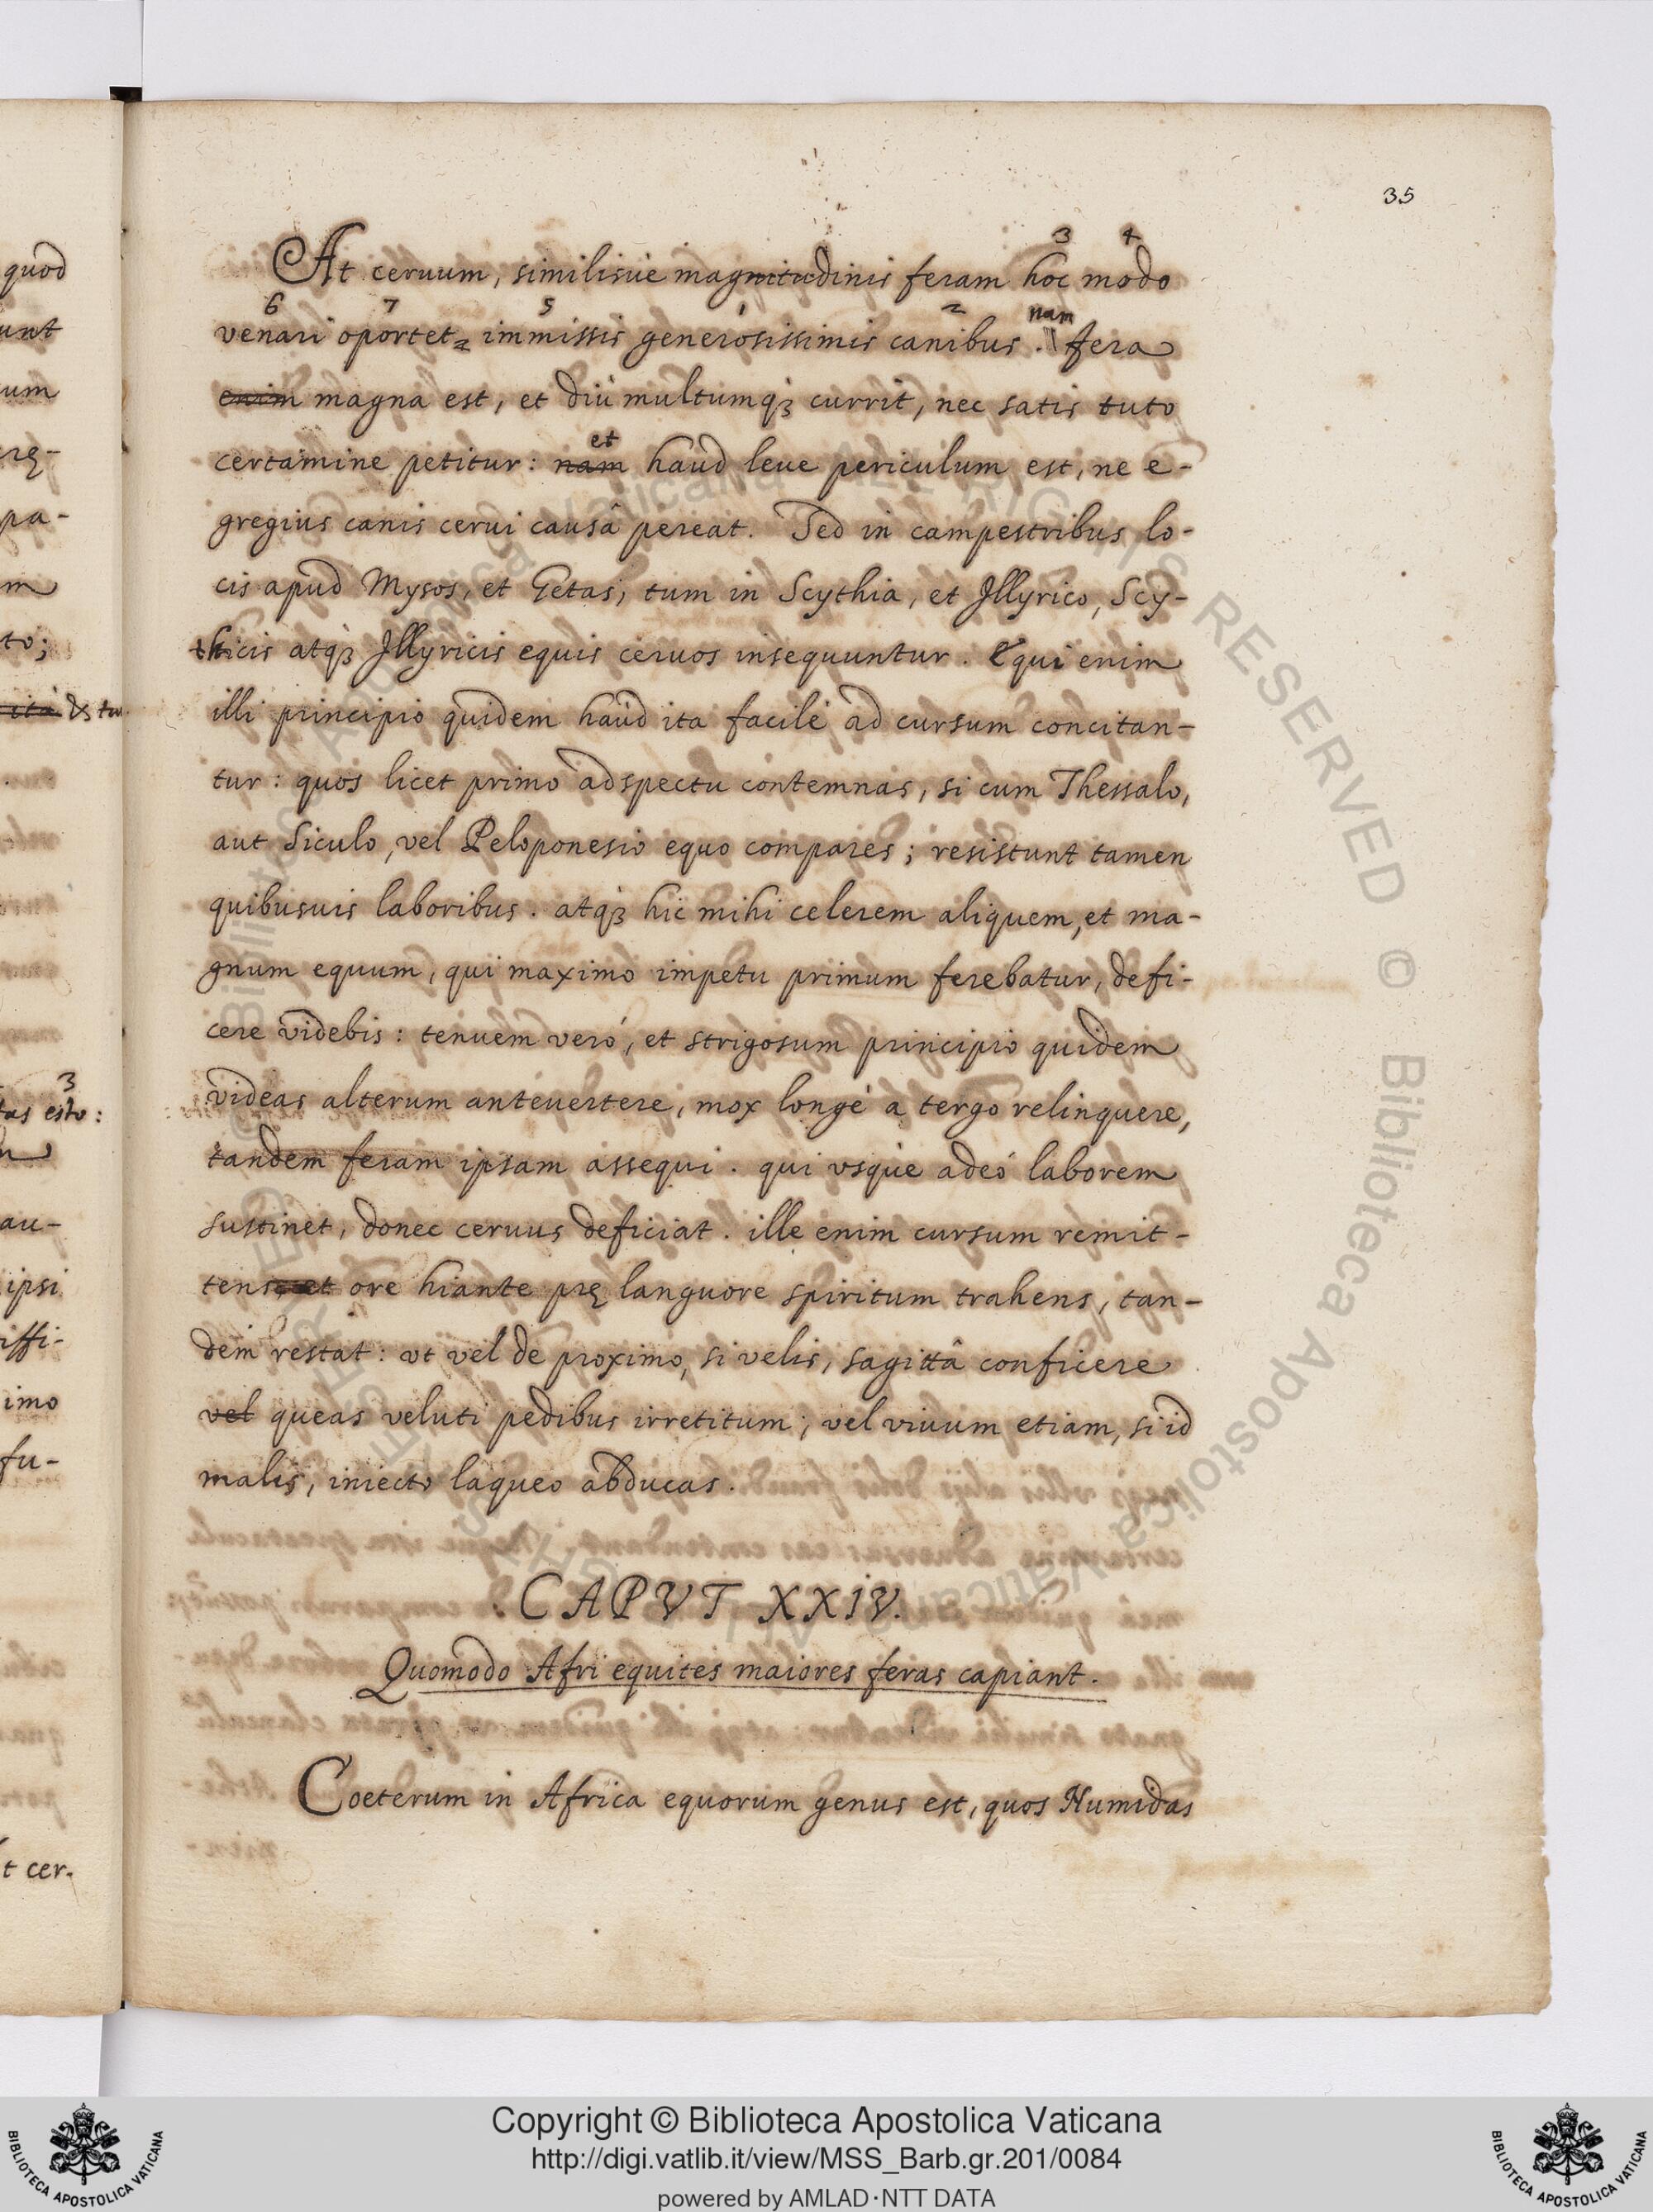 35
At ceruum, similisúe magnitudinis feram hoc modo
venari oportet, immissis generosissimis canibus. nam fera
enim magna est, et diù multumq₃ currit, nec satis tuto
certamine petitur: nam et haud leue periculum est, ne e-
gregius canis cerui causâ pereat. Sed in campestribus lo-
cis apud Mysos, et Getas, tum in Scythia, et Illyrico, Scy-
thicis atq₃ Illyricis equis ceruos insequuntur. Equi enim
illi principio quidem haud ita facilè ad cursum concitan-
tur: quos licet primo adspectu contemnas, si cum Thessalo,
aut Siculo, vel Peloponesio equo compares; resistunt tamen
quibusuis laboribus. atq₃ hic mihi celerem aliquem, et ma-
gnum equum, qui maximo impetu primum ferebatur, defi-
cere videbis: tenuem verò, et strigosum principio quidem
videas alterum anteuertere, mox longè a tergo relinquere,
tandem feram ipsam assequi. qui vsque adeò laborem
sustinet, donec ceruus deficiat. ille enim cursum remit-
tens et ore hiante prę languore spiritum trahens, tan-
dem restat: vt vel de proximo, si velis, sagittâ conficere
vel queas veluti pedibus irretitum; vel viuum etiam, si id
malis, iniecto laqueo abducas.
CAPVT XXIV.
Quomodo Afri equites maiores feras capiant.
Coeterum in Africa equorum genus est, quos Numidas
quod
unt
um
pa-
m
to;
ita
3
esto:
au-
ipsi
iffi-
imo
fu-
t cer.
3 4
6 7 5 1 2
Copyright © Biblioteca Apostolica Vaticana
http://digi.vatlib.it/view/MSS_Barb.gr.201/0084
powered by AMLAD·NTT DATA
BIBLIOTECA APOSTOLICA VATICANA
BIBLIOTECA APOSTOLICA VATICANA